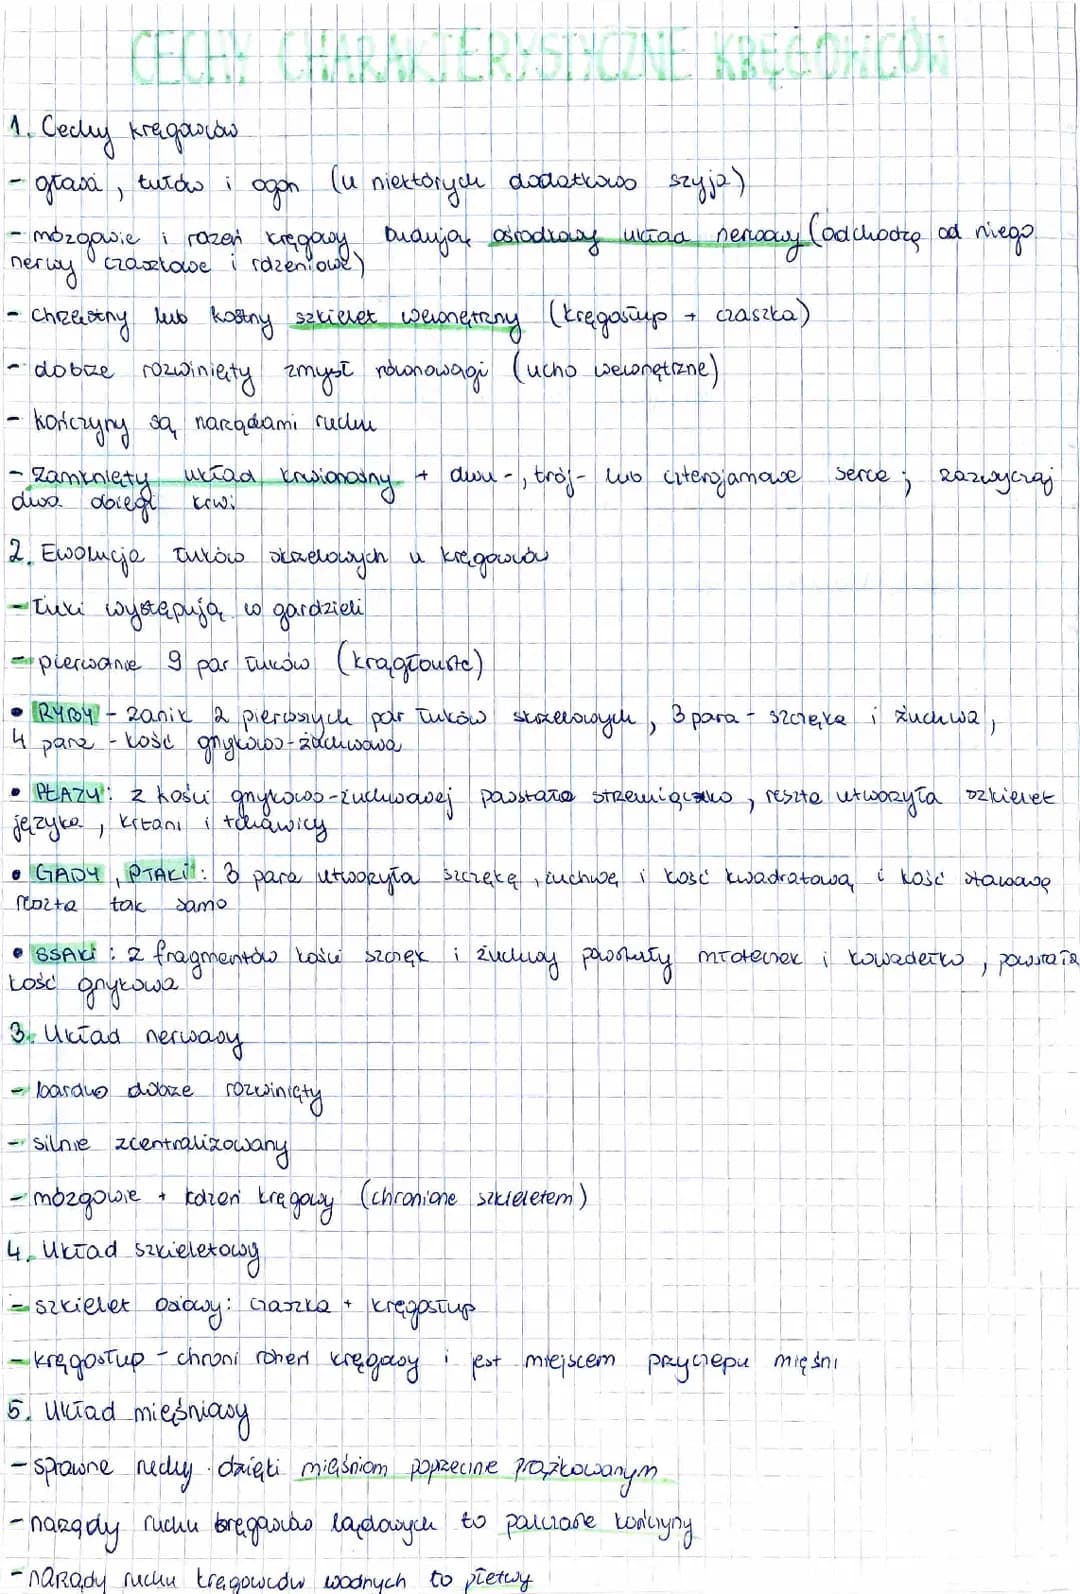 CECHY CHARAKTERYSTYCZNE KRĘGOWCÓW
1. Cechy kręgowców
- głowa, tułów i ogon (u niektórych dodatkowo szyja)
- mózgowie i rdzeń kręgowy budują ośrodkowy układ nerwowy (odchodzą od niego
nerwy czaszkowe i rdzeniowe)
- chrzęstny lub kostny szkielet wewnętrzny (kręgosłup + czaszka)
- dobrze rozwinięty zmysł równowagi (ucho wewnętrzne)
- kończyny są narządami ruchu
- Zamknięty układ krwionośny + dwu-, trój- lub czterojamowe serce; zazwyczaj
dwa obiegi krwi
2. Ewolucja łuków skrzelowych u kręgowców
- łuki występują w gardzieli
- pierwotnie 9 par łuków (krągłouste)
• RYBY - zanik 2 pierwszych par łuków skrzelowych, 3 para - szczęka i żuchwa,
4 para - kość gnykowo-żuchwowa
• PŁAZY: z kości gnykowo-żuchwowej powstało strzemiączko, reszta utworzyła szkielet
języka, krtani i tchawicy
• GADY, PTAKI: 3 para utworzyła szczękę, żuchwę i kość kwadratową i kość stawową
reszta tak samo
• SSAKI: z fragmentów kości szczęk i żuchwy powstały młoteczek i kowadełko, powstała
kość gnykowa
3. Układ nerwowy
- bardzo dobrze rozwinięty
- silnie zcentralizowany
- mózgowie + rdzeń kręgowy (chronione szkieletem)
4. Układ szkieletowy
- szkielet osiowy: czaszka + kręgosłup
- kręgosłup - chroni rdzeń kręgowy i jest miejscem przyczepu mięśni
5. Układ mięśniowy
- sprawne ruchy dzięki mięśniom poprzecznie prążkowanym
- narządy ruchu kręgowców lądowych to palczaste kończyny
- narządy ruchu kręgowców wodnych to płetwy